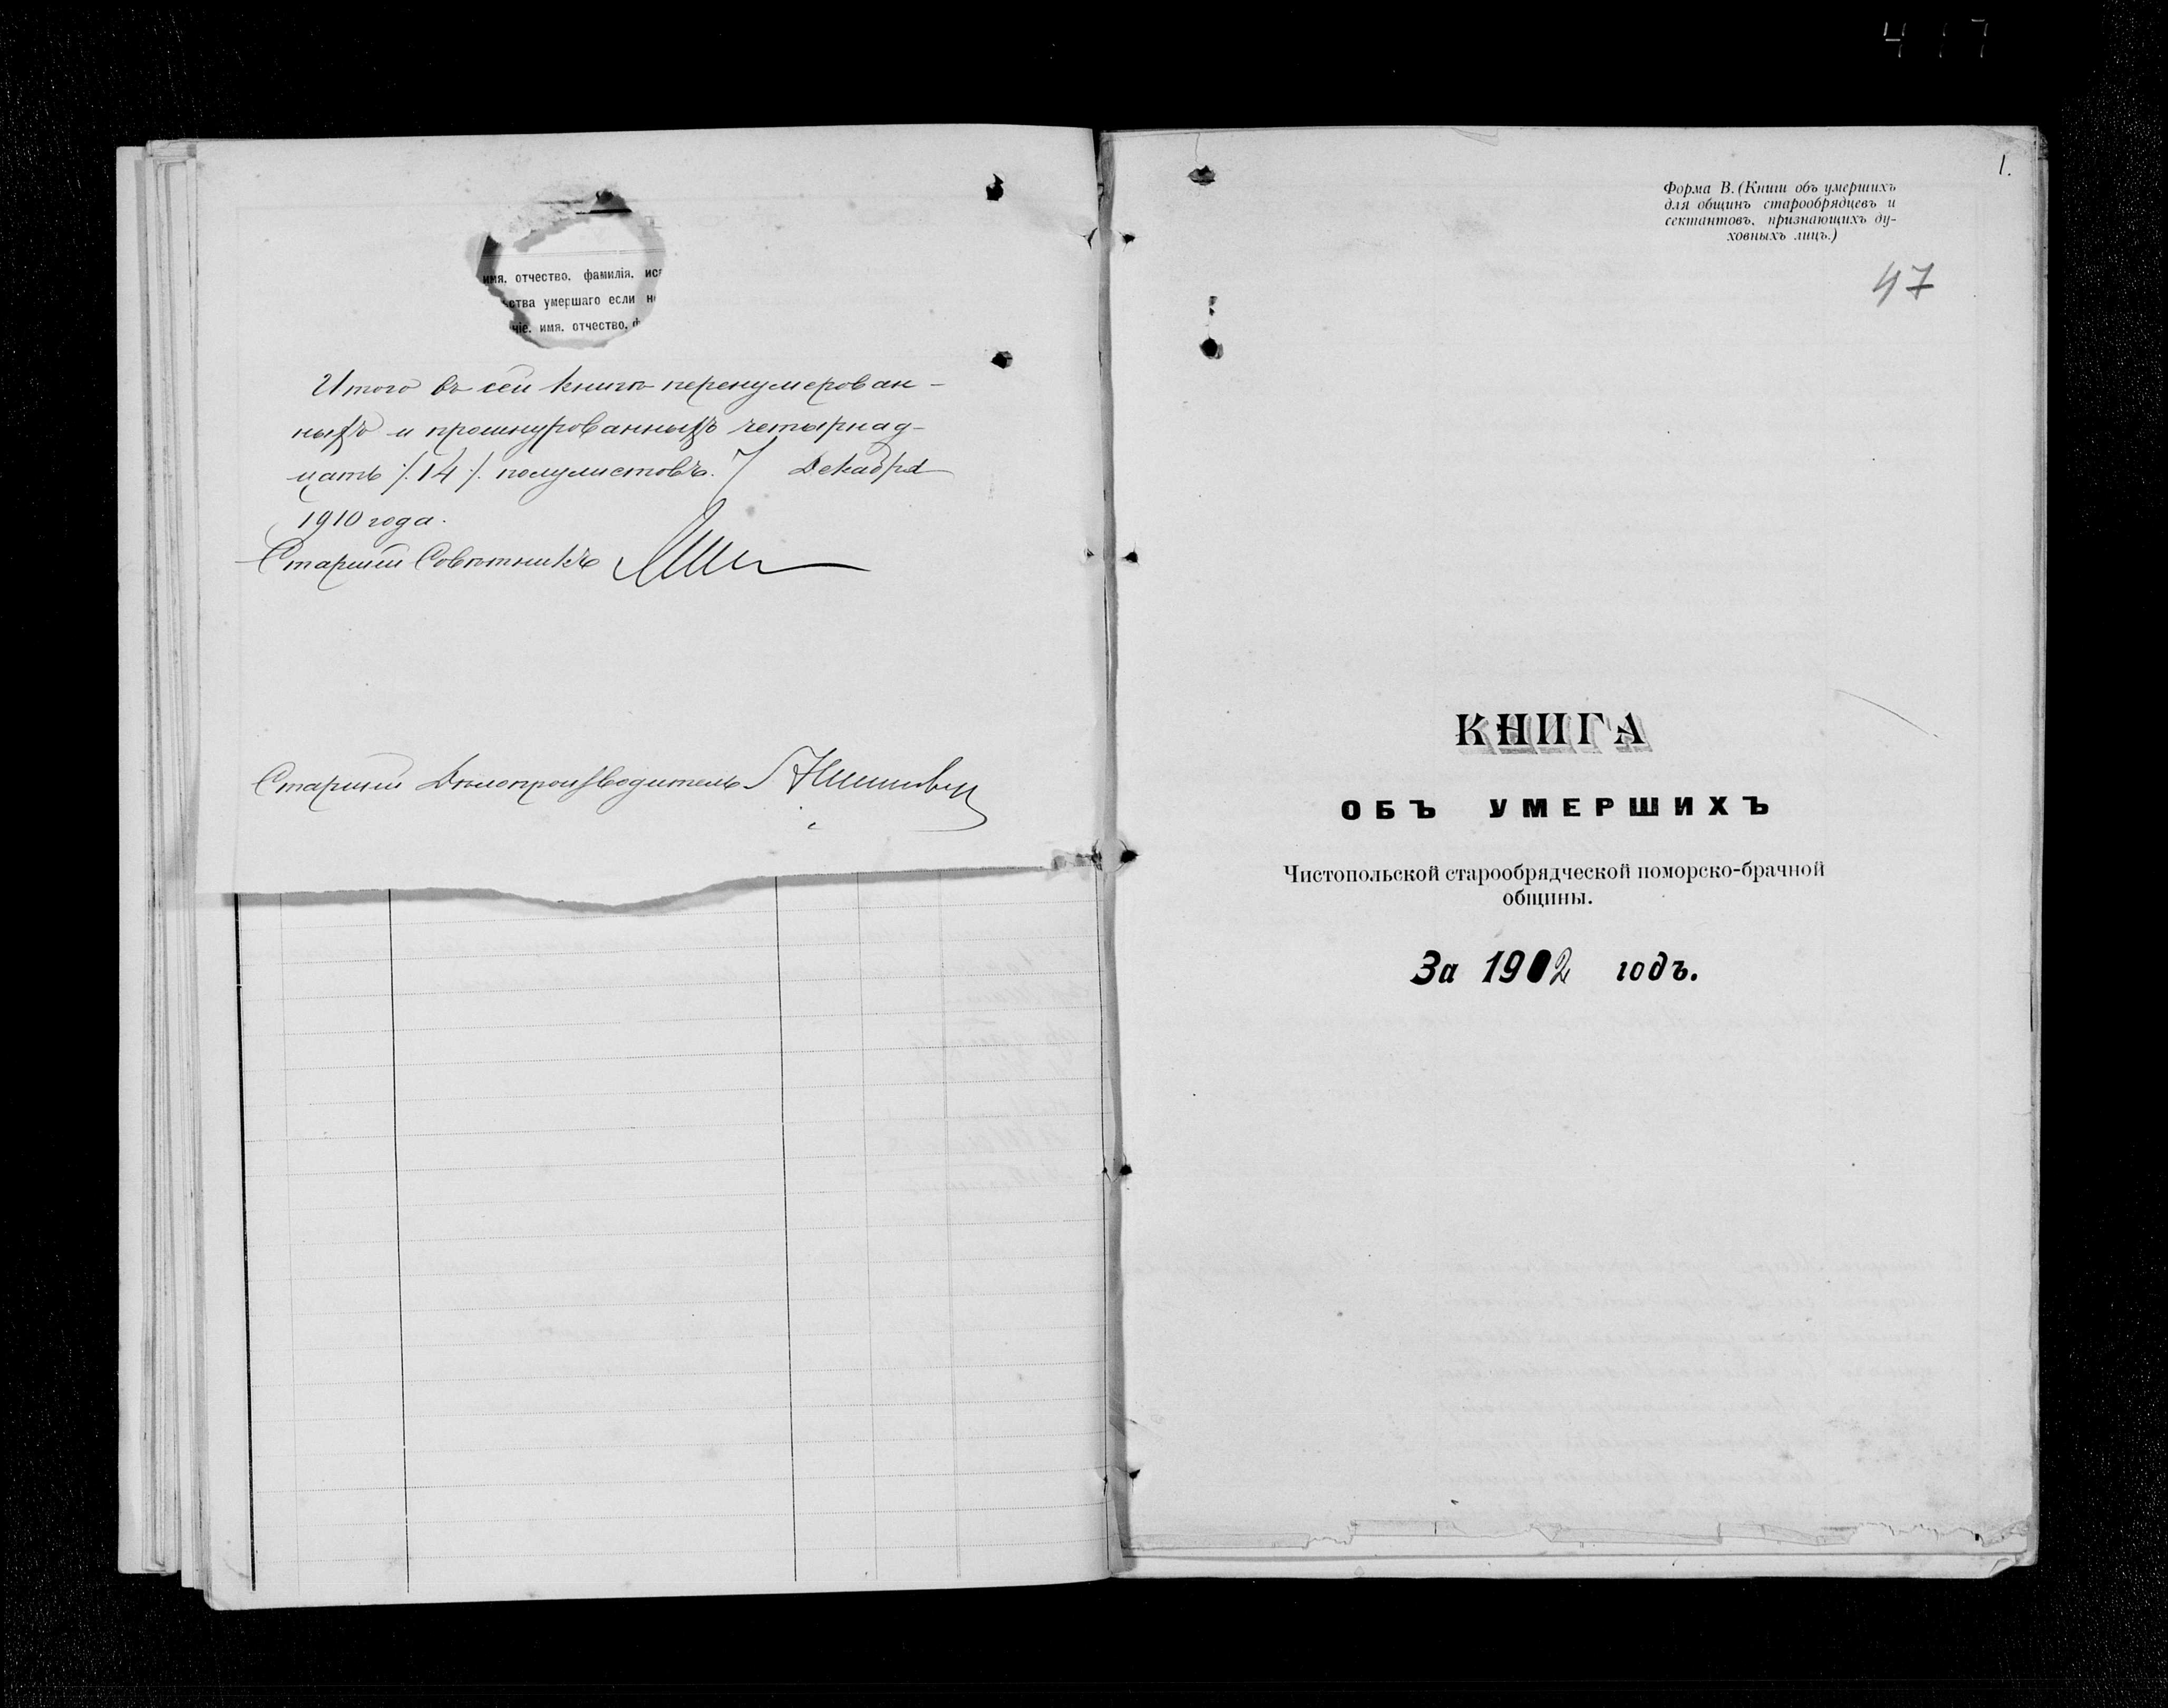 417
имя. отчество. фамилія.
ства умершаго если
чіе. имя. отчество. ф
Итого въ сей книгѣ перенумерован-
ныхъ и прошнурованныхъ четырнад-
цать /.14/. полулистовъ. 7 Декабря
1910 года.
Старшій Совѣтникъ
Старшій Дѣлопроизводитель
1.
Форма В. (Книги объ умершихъ
для общинъ старообрядцевъ и
сектантовъ, признающихъ ду-
ховныхъ лицъ.)
47
КНИГА
ОБЪ УМЕРШИХЪ
Чистопольской старообрядческой поморско-брачной
общины.
За 1902 годъ.